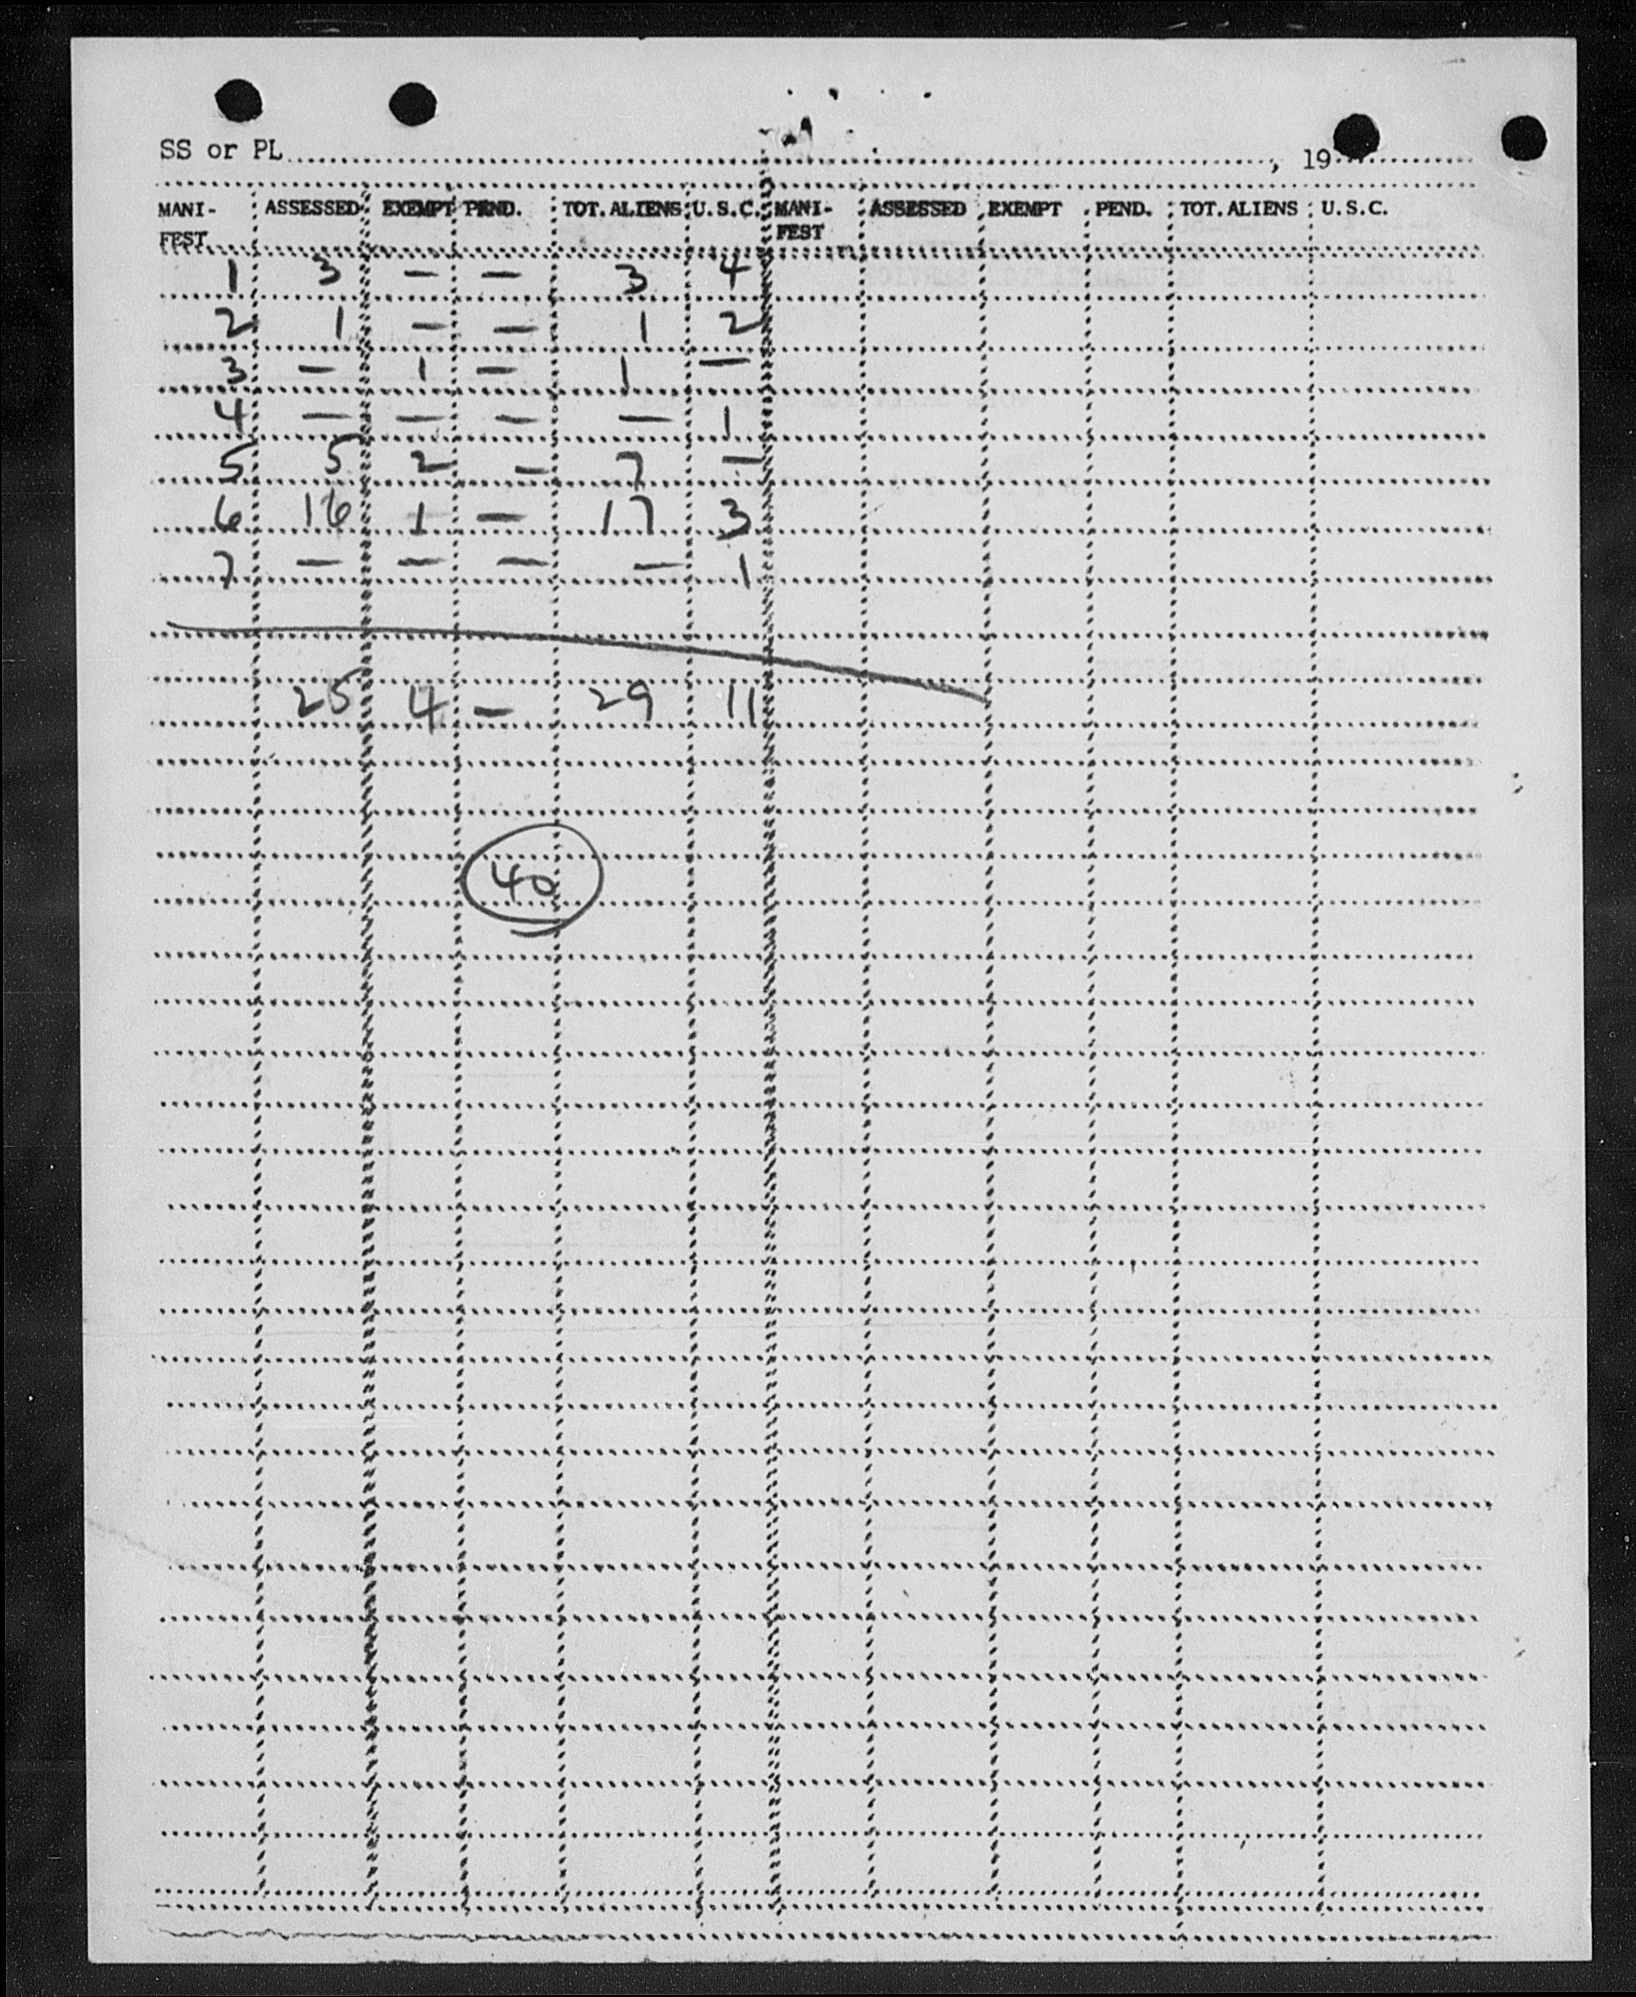 SS or PL , 19
MANI- ASSESSED EXEMPT PEND. TOT. ALIENS U.S.C. MANI- ASSESSED EXEMPT PEND. TOT. ALIENS U.S.C.
FEST FEST
1 3 — — 3 4
2 1 — — 1 2
3 — 1 — 1 —
4 — — — — 1
5 5 2 — 7 —
6 16 1 — 17 3
7 — — — — 1
25 4 — 29 11
40